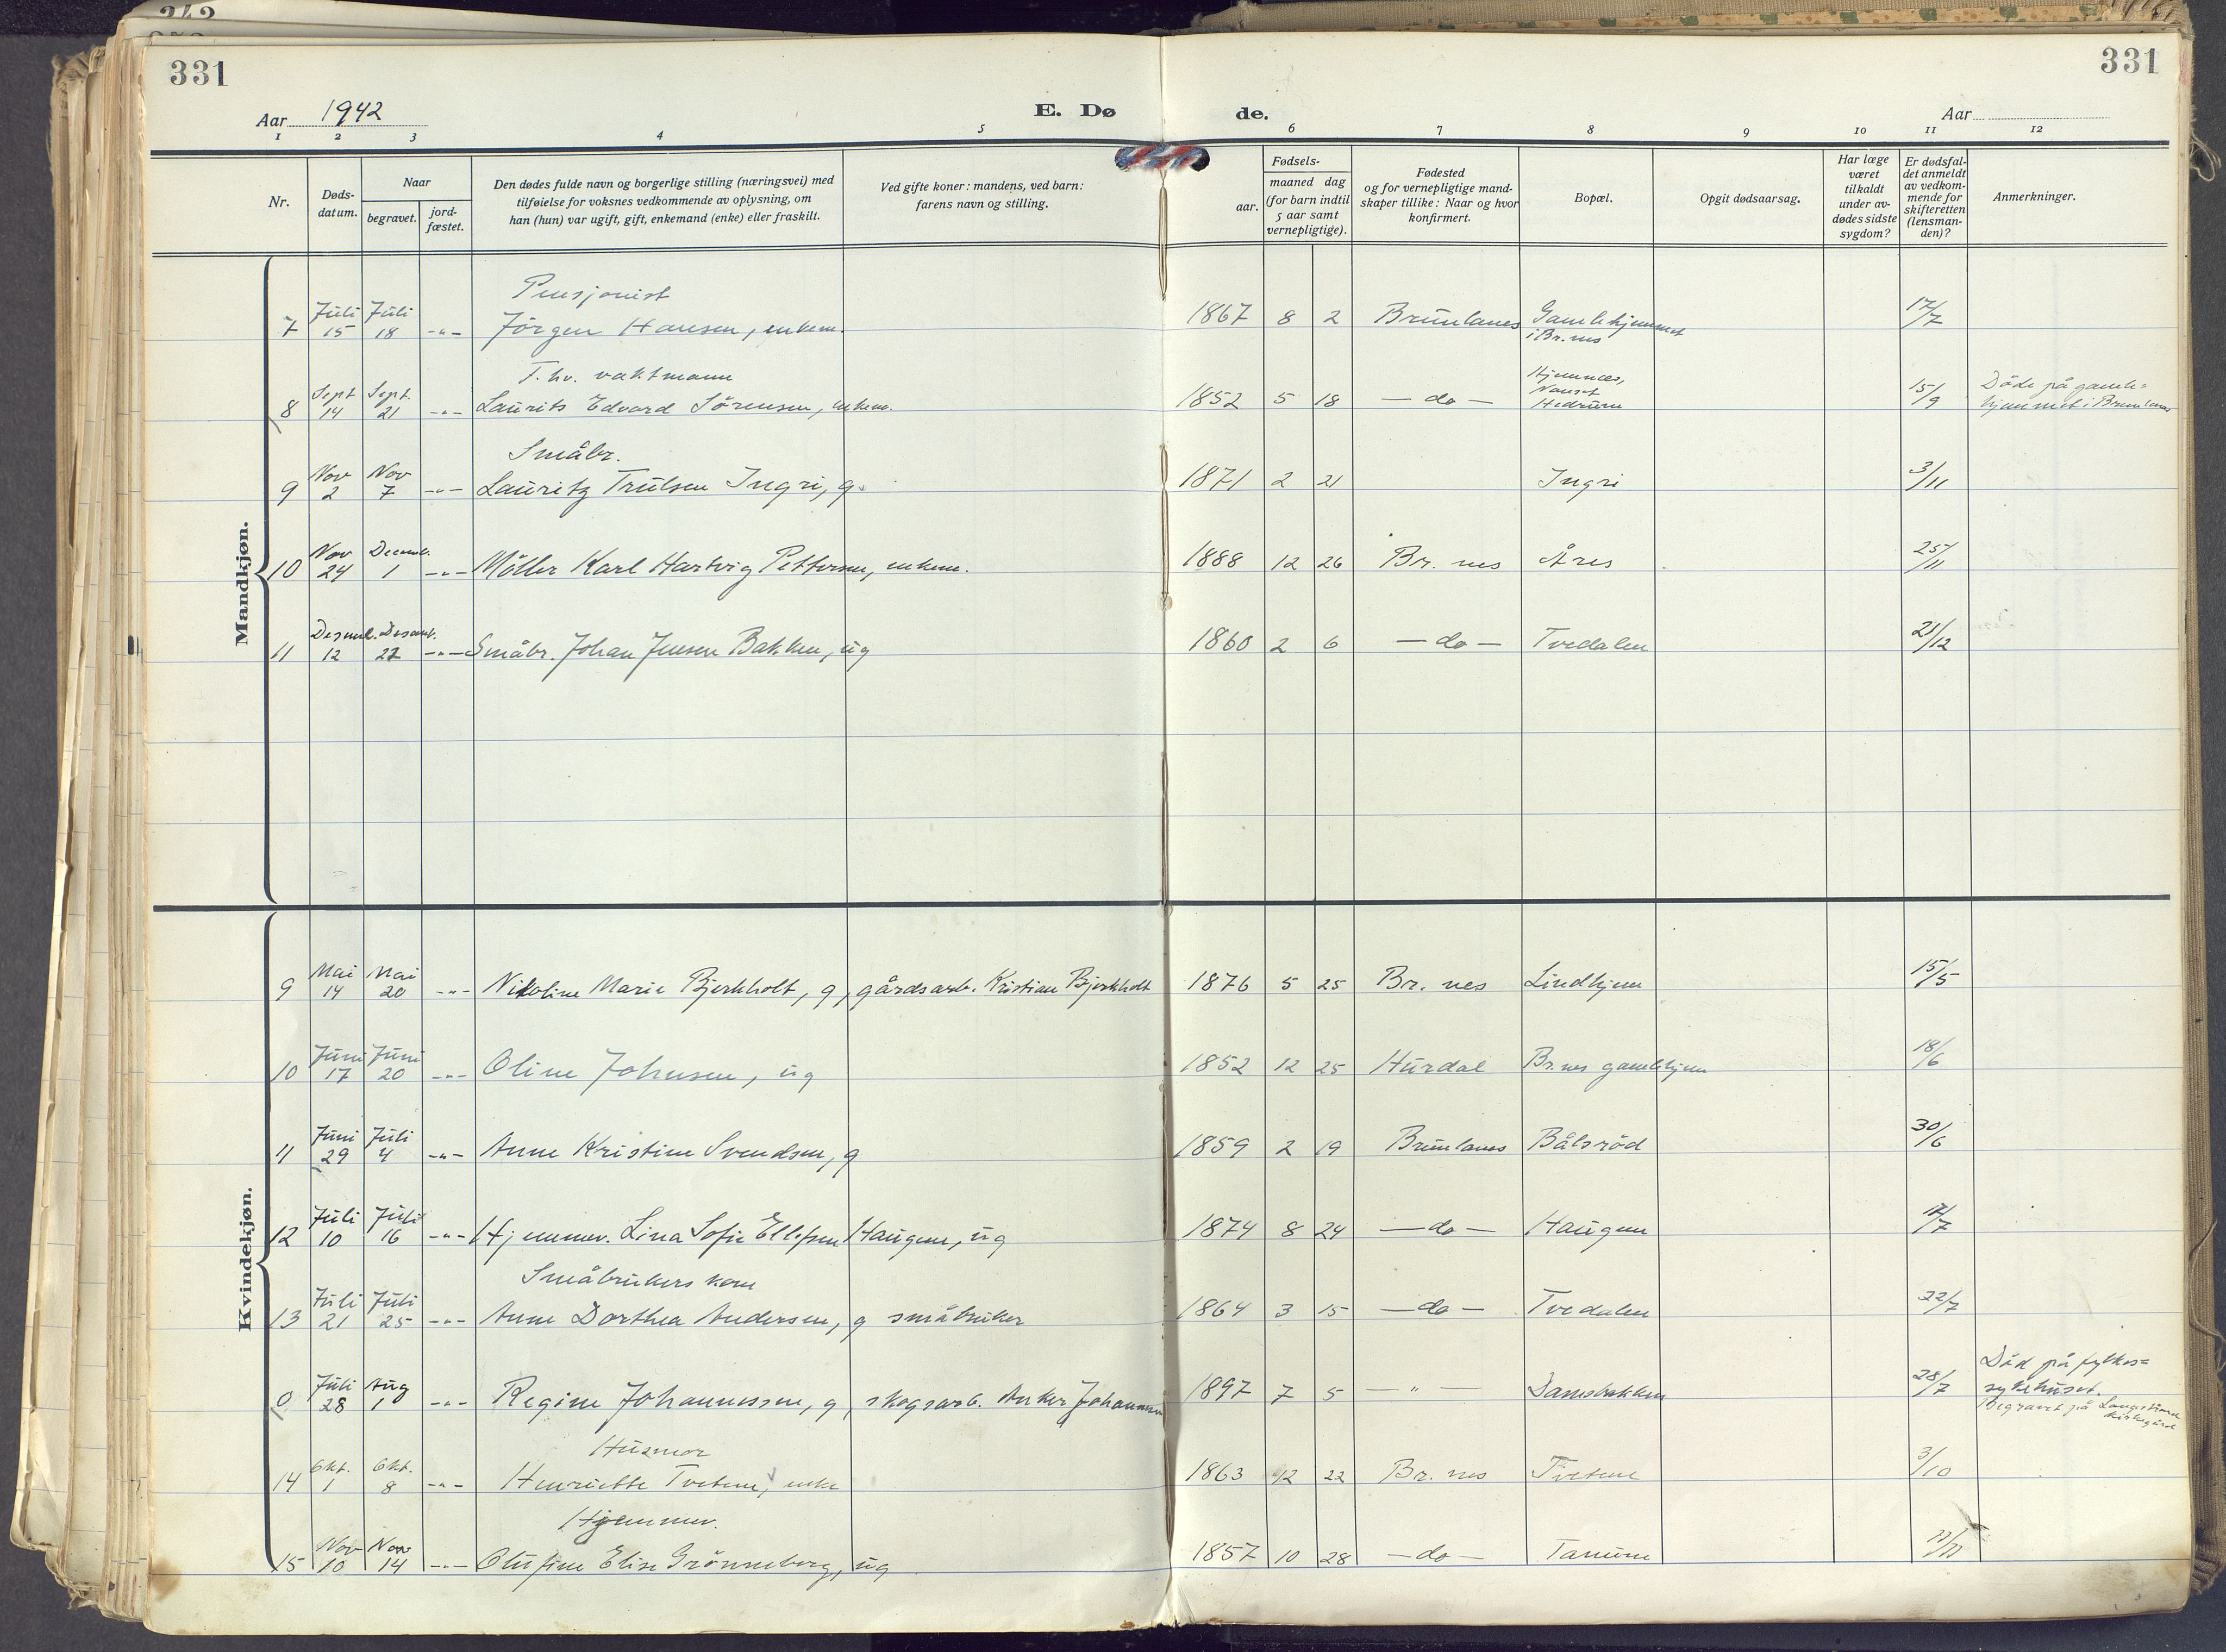 331
331
Aar 1942
E. Dø de.
Aar
1 2 3 4 5 6 7 8 9 10 11 12
Nr.
Døds-
datum.
Naar
begravet.
jord-
fæstet.
Den dødes fulde navn og borgerlige stilling (næringsvei) med
tilføielse for voksnes vedkommende av oplysning, om
han (hun) var ugift, gift, enkemand (enke) eller fraskilt.
Ved gifte koner: mandens, ved barn:
farens navn og stilling.
Fødsels-
aar.
maaned dag
(for barn indtil
5 aar samt
vernepligtige).
Fødested
og for vernepligtige mand-
skaper tillike: Naar og hvor
konfirmert.
Bopæl.
Opgit dødsaarsag.
Har læge
været
tilkaldt
under av-
dødes sidste
sygdom?
Er dødsfal-
det anmeldt
av vedkom-
mende for
skifteretten
(lensman-
den)?
Anmerkninger.
Mandkjøn.
Pensjonist
7 Juli 15 Juli 18 -"- Jörgen Hansen, enkem. 1867 8 2 Brunlanes Gamlehjemmet 17/7
i Br.nes
T. hv. vaktmann
8 Sept 14 Sept. 21 -"- Laurits Edvard Sörensen, enkem. 1852 5 18 — do — Hjemnes, Nanset Hedrum 15/9 Döde på gamle=
hjemmet i Brunlanes
Småbr.
9 Nov 2 Nov 7 -"- Lauritz Trulsen Ingri, g. 1871 2 21 Ingri 3/11
10 Nov 24 Decemb. 1 -"- Möller Karl Hartvig Pettersen, enkem. 1888 12 26 Br. nes Åres 25/11
11 Desemb. 12 Desemb. 22 -"- Småbr. Johan Jensen Bakken, ug 1860 2 6 — do — Tvedalen 21/12
Kvindekjøn.
9 Mai 14 Mai 20 -"- Nikoline Marie Bjerkholt, g, gårdsarb. Kristian Bjerkholt 1876 5 25 Br. nes Lindhjem 15/5
10 Juni 17 Juni 20 -"- Oline Johnsen, ug 1852 12 25 Hurdal Br.nes gamlehjem 18/6
11 Juni 29 Juli 4 -"- Anne Kristine Svendsen, g 1859 2 19 Brunlanes Bålsröd 30/6
12 Juli 10 Juli 16 -"- Hjemmev. Lina Sofie Ellefsen Haugen, ug 1874 8 24 — do — Haugen
Småbrukers kone
13 Juli 21 Juli 25 -"- Anne Dorthea Andersen, g småbruker 1864 3 15 — do — Tvedalen 22/7
0 Juli 28 Aug 1 -"- Regine Johannessen, g, skogsarb. Anker Johannessen 1897 7 5 — " — Damsbakken 28/7 Död på fylkes=
sykehuset.
Begravet på Langestrand
kirkegård
Husmor
14 Okt. 1 Okt. 8 -"- Henriette Tvetene, enke 1863 12 22 Br. nes Tvetene 3/10
Hjemmev.
15 Nov 10 Nov 14 -"- Olufine Elise Grönneberg, ug 1857 10 28 — do — Tanum 11/11